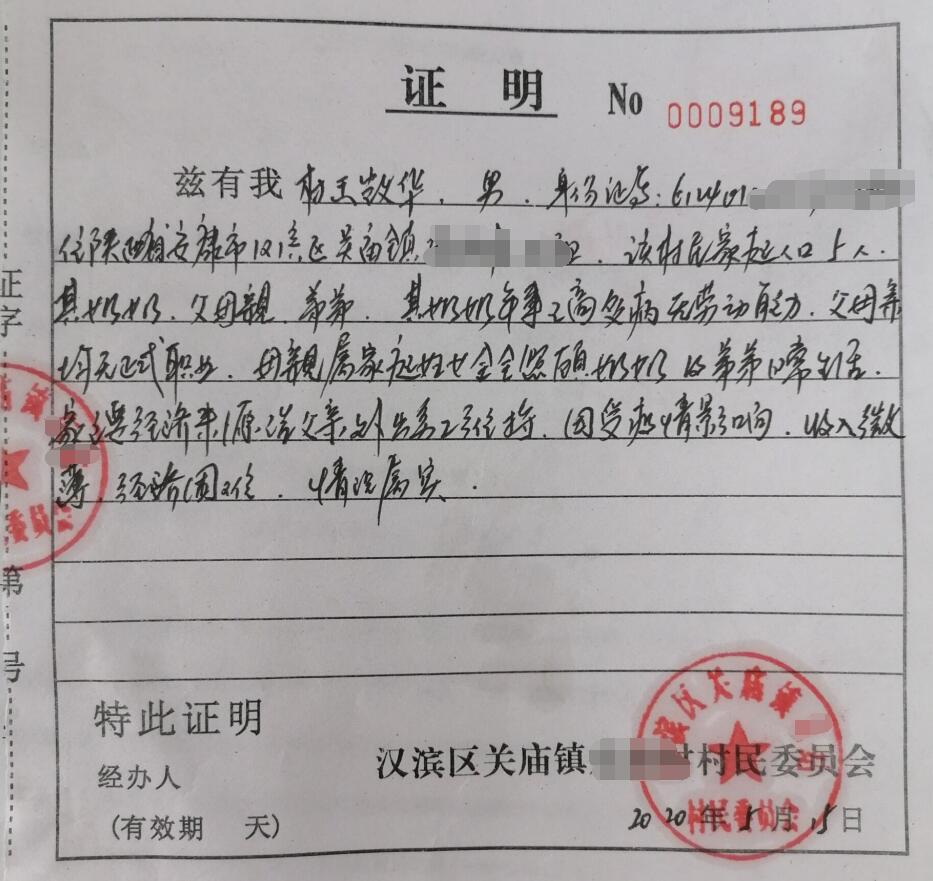 证 明 No 0009189
兹有我村王敦华，男，身份证号：612401
住陕西省安康市汉滨区关庙镇 组，该村民家庭人口5人，
其奶奶、父母親、弟弟，其奶奶年事已高多病无劳动能力，父母亲
均无正式职业，母親属家庭妇女全全照顾奶奶的弟弟日常生活，
家里经济来源靠父亲外出务工维持，因受疫情影响，收入微
薄，经济困难，情况属实。
特此证明
经办人
汉滨区关庙镇 村村民委员会
（有效期 天）
2020年5月15日
证字
第
号
滨区关庙镇
村民委员会
镇
委员会